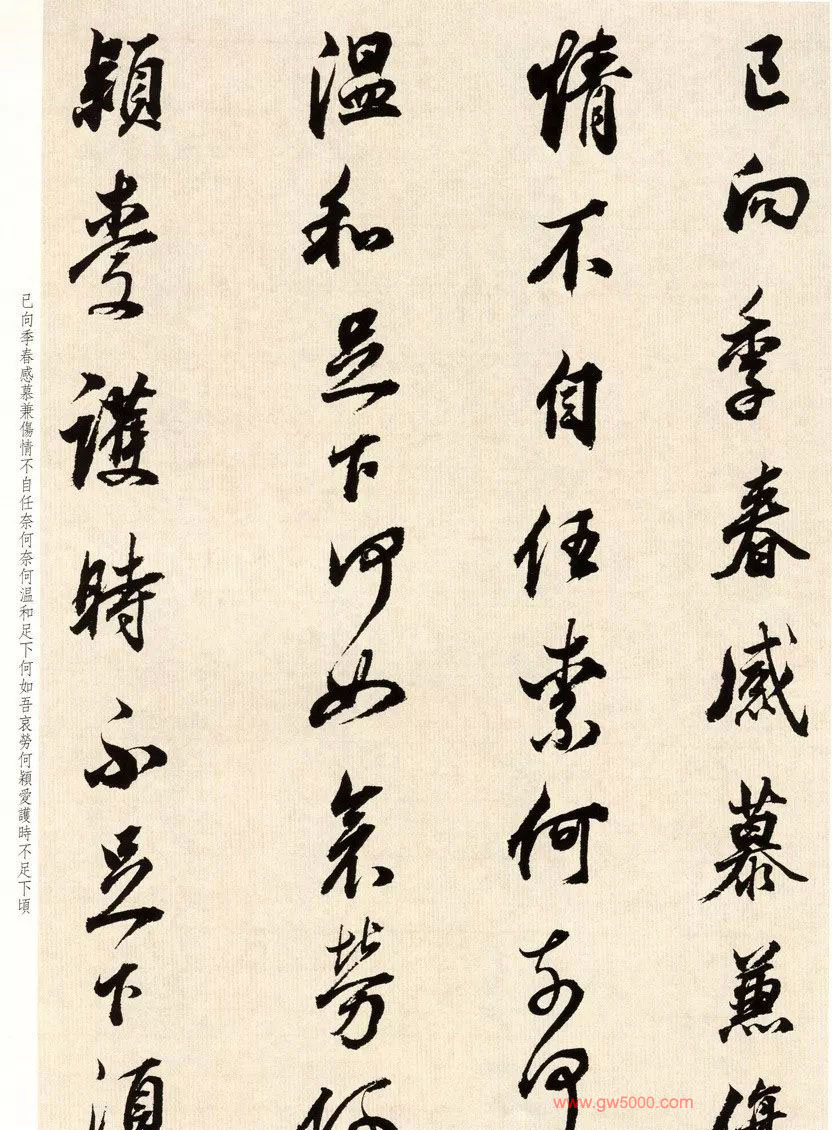 已向季春感慕兼傷
情不自任奈何奈何
温和足下何如哀勞何
穎愛護時不足下須
已向季春感慕兼傷情不自任奈何奈何温和足下何如吾哀勞何穎愛護時不足下頃
www.gw5000.com